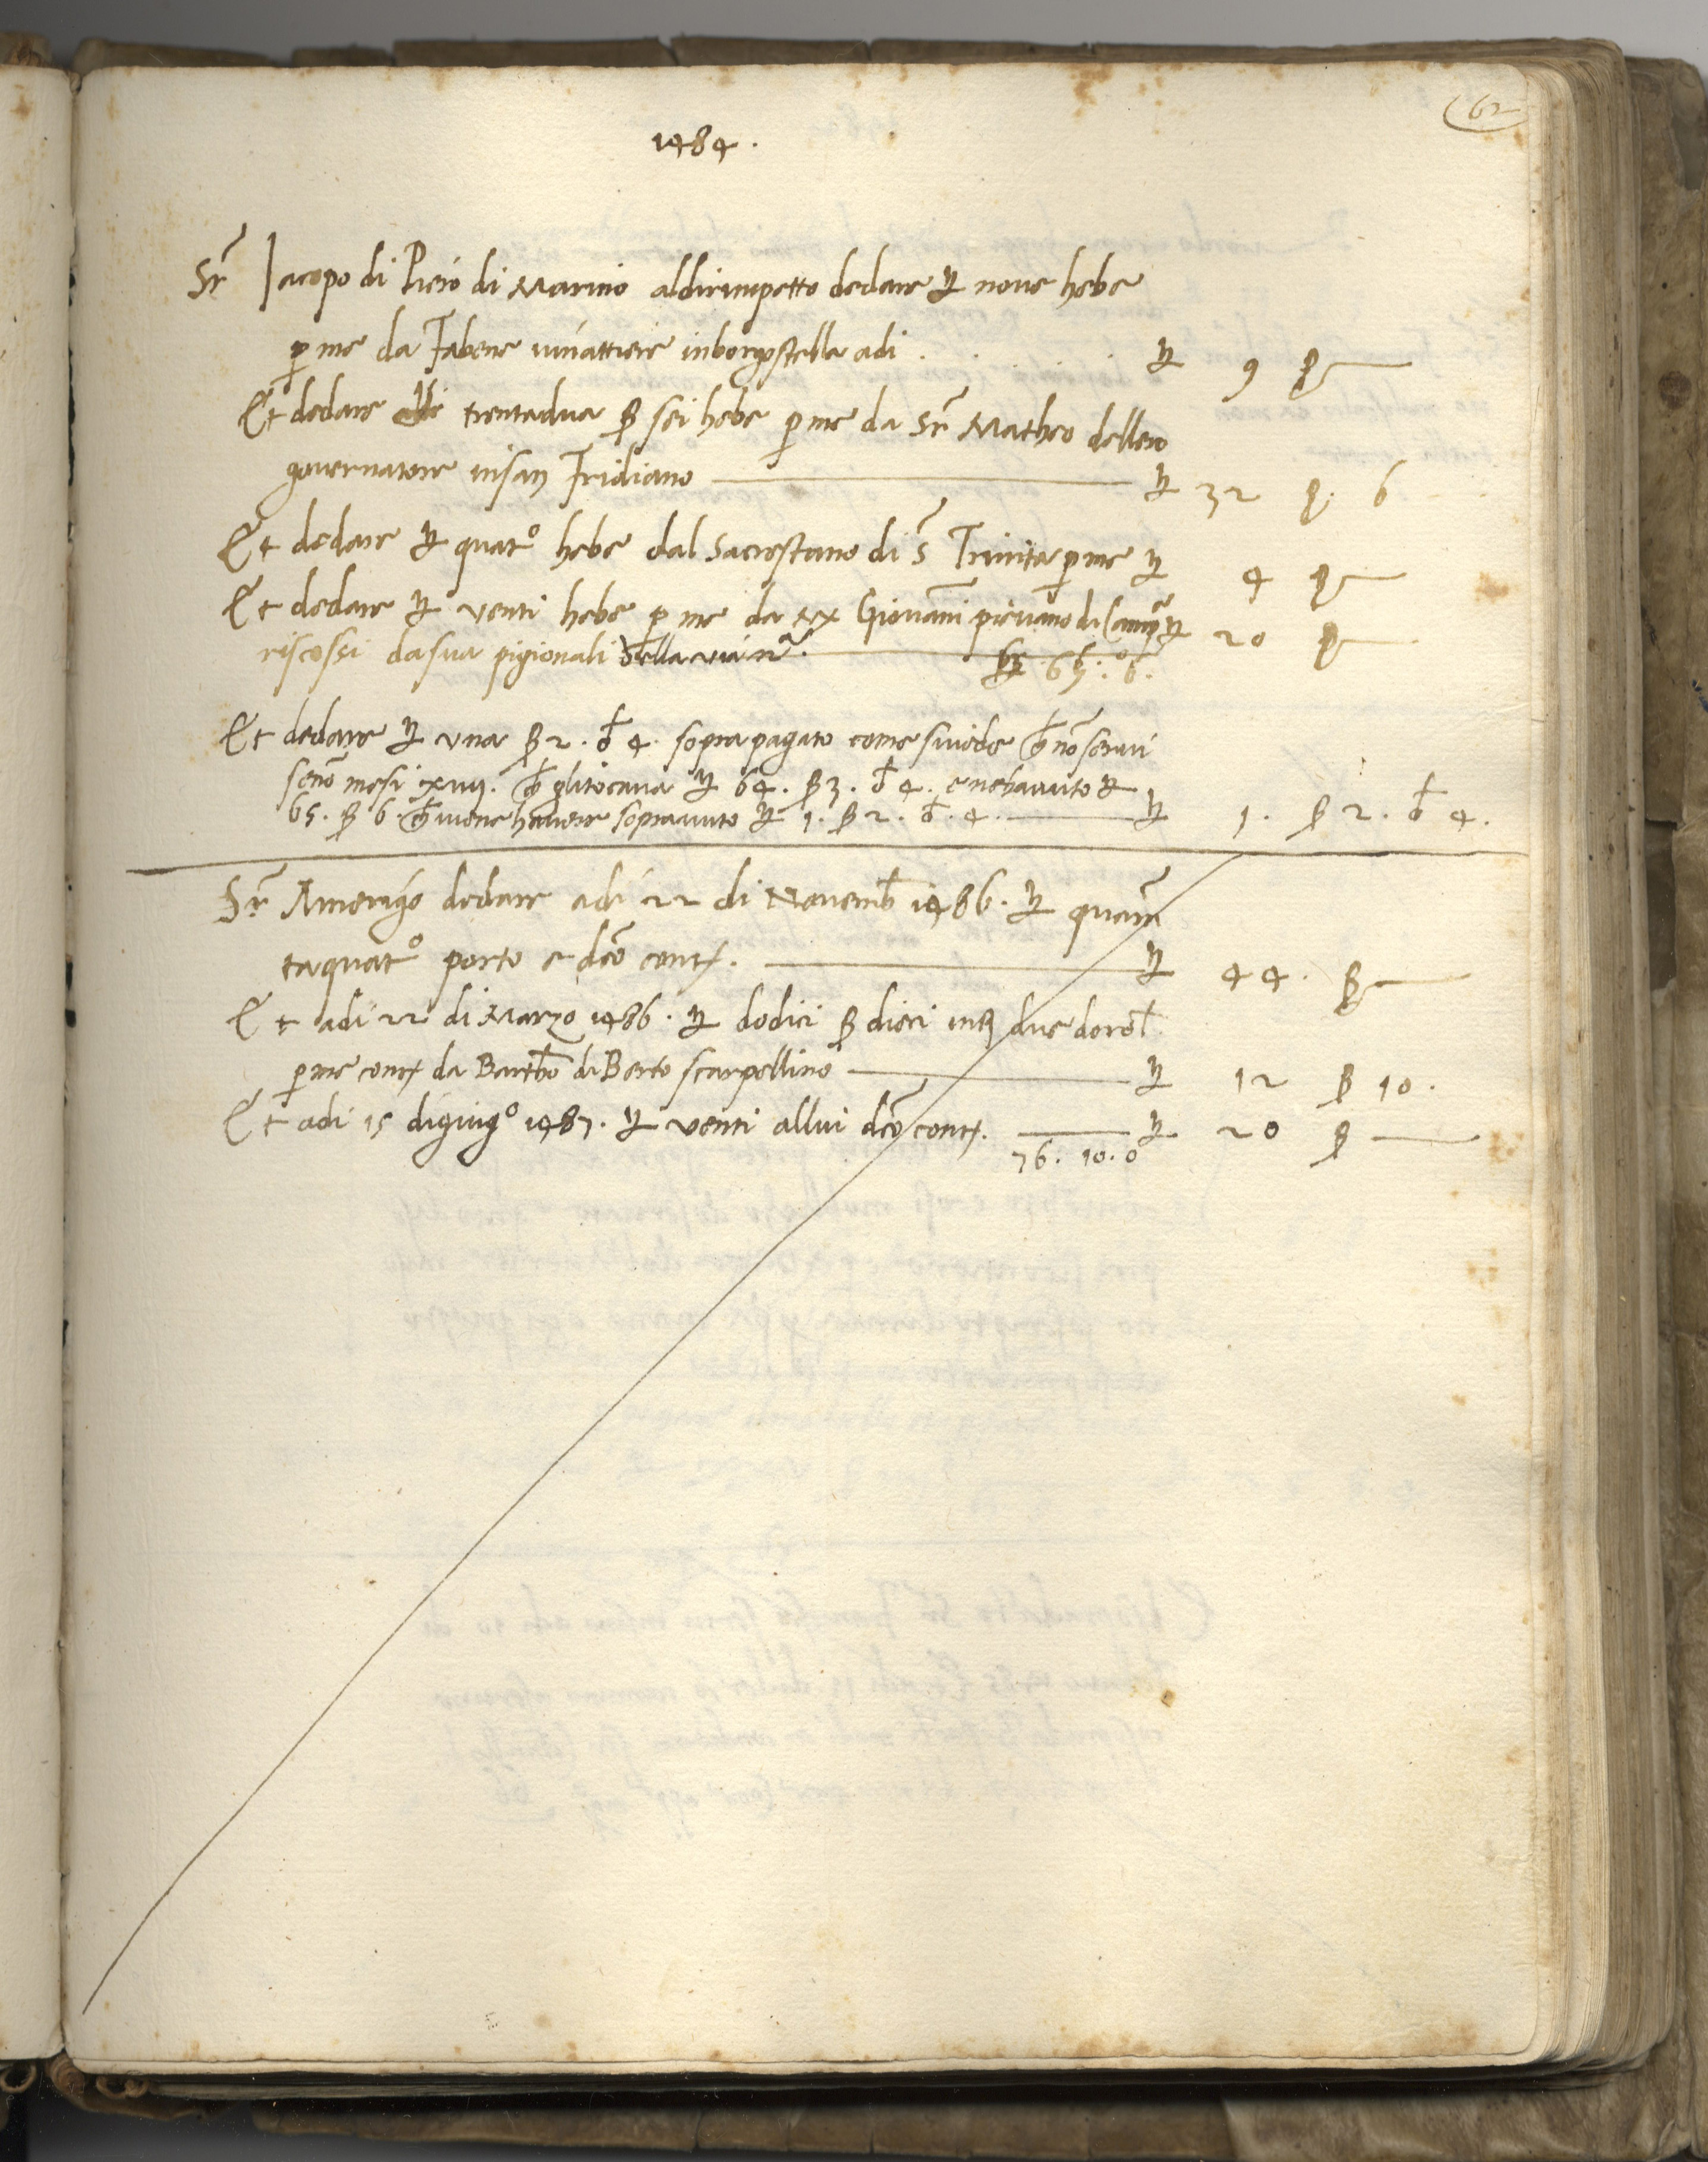 62
1484.
Sr Iacopo di Piero di Marino aldirimpetto dedare ₶ nove hebe
p me da Fabene vinattiere inborgostella adi . . . ₶ 9 ß —
Et dedare trentadua ß sei hebe p me da Sr Matheo dellero
governatore insan Fridiano — ₶ 32 ß. 6
Et dedare ₶ quat° hebe dal Sacrestano di S Trinita p me ₶ 4 ß —
Et dedare ₶ venti hebe p me da Giovāni piovano di ₶ 20 ß —
riscossi dasua pigionali della via — ₶ 65. 6.
Et dedare ₶ una ß 2. đ 4. soprapagato come sivede nō servi
senō mesi xviij. glitocava ₶ 64. ß 3. đ 4. enehavuto ₶
65. ß 6. viene havere sopravuto ₶ 1. ß 2. đ. 4. — ₶ 1. ß 2. đ 4.
Sr Amerigo dedare adi 22 di Novemb 1486. ₶ quarā
taquat° porto e dco cont. — ₶ 44. ß —
Et adi 22 di Marzo 1486. ₶ dodici ß dieci in due doro
p me cont da Bartho di Berto scarpellino — ₶ 12 ß 10.
Et adi 15 digiug° 1487. ₶ venti allui dco cont. — ₶ 20 ß —
76. 10. 0